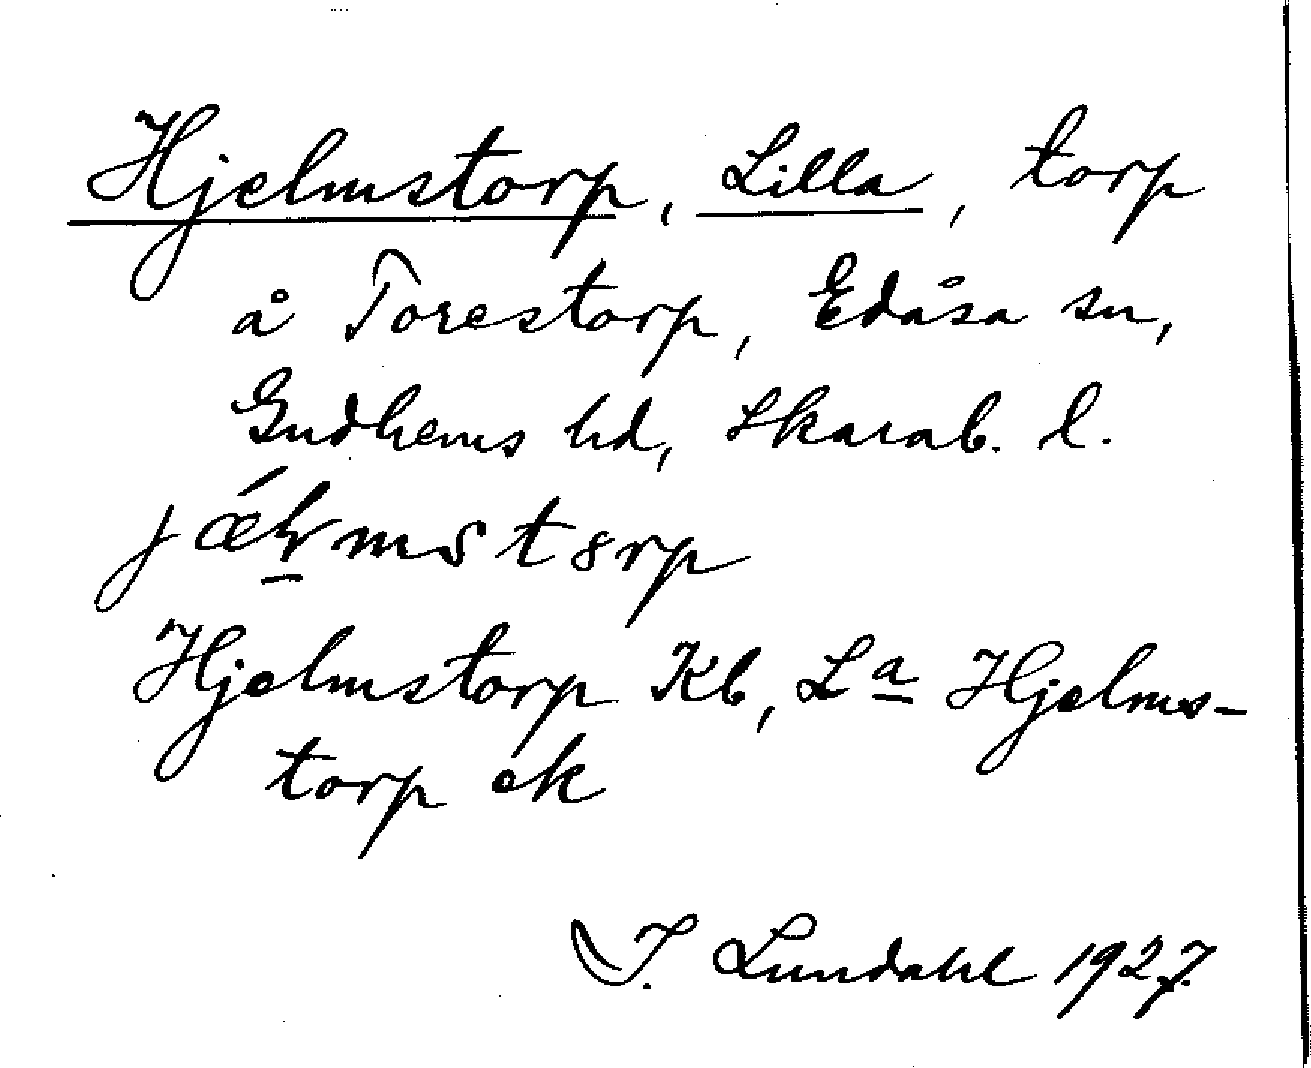 Hjelmstorp, Lilla, torp
å Torestorp, Edåsa sn,
Gudhems hd, Skarab. l.
Hjelmstorp Kb, Lª Hjelms-
torp ek
I. Lundahl 1927.